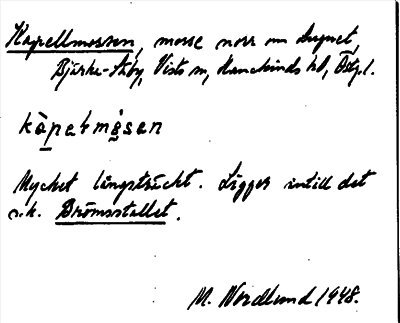 Kapellmossen, mosse norr om Lugnet,
Bjärka-Säby, Vists sn, Hanekinds hd, Östgl.
kàpeɫmå̀sen
Mycket långsträckt. Ligger intill det
s.k. Brömsstallet.
M. Nordlund 1948.